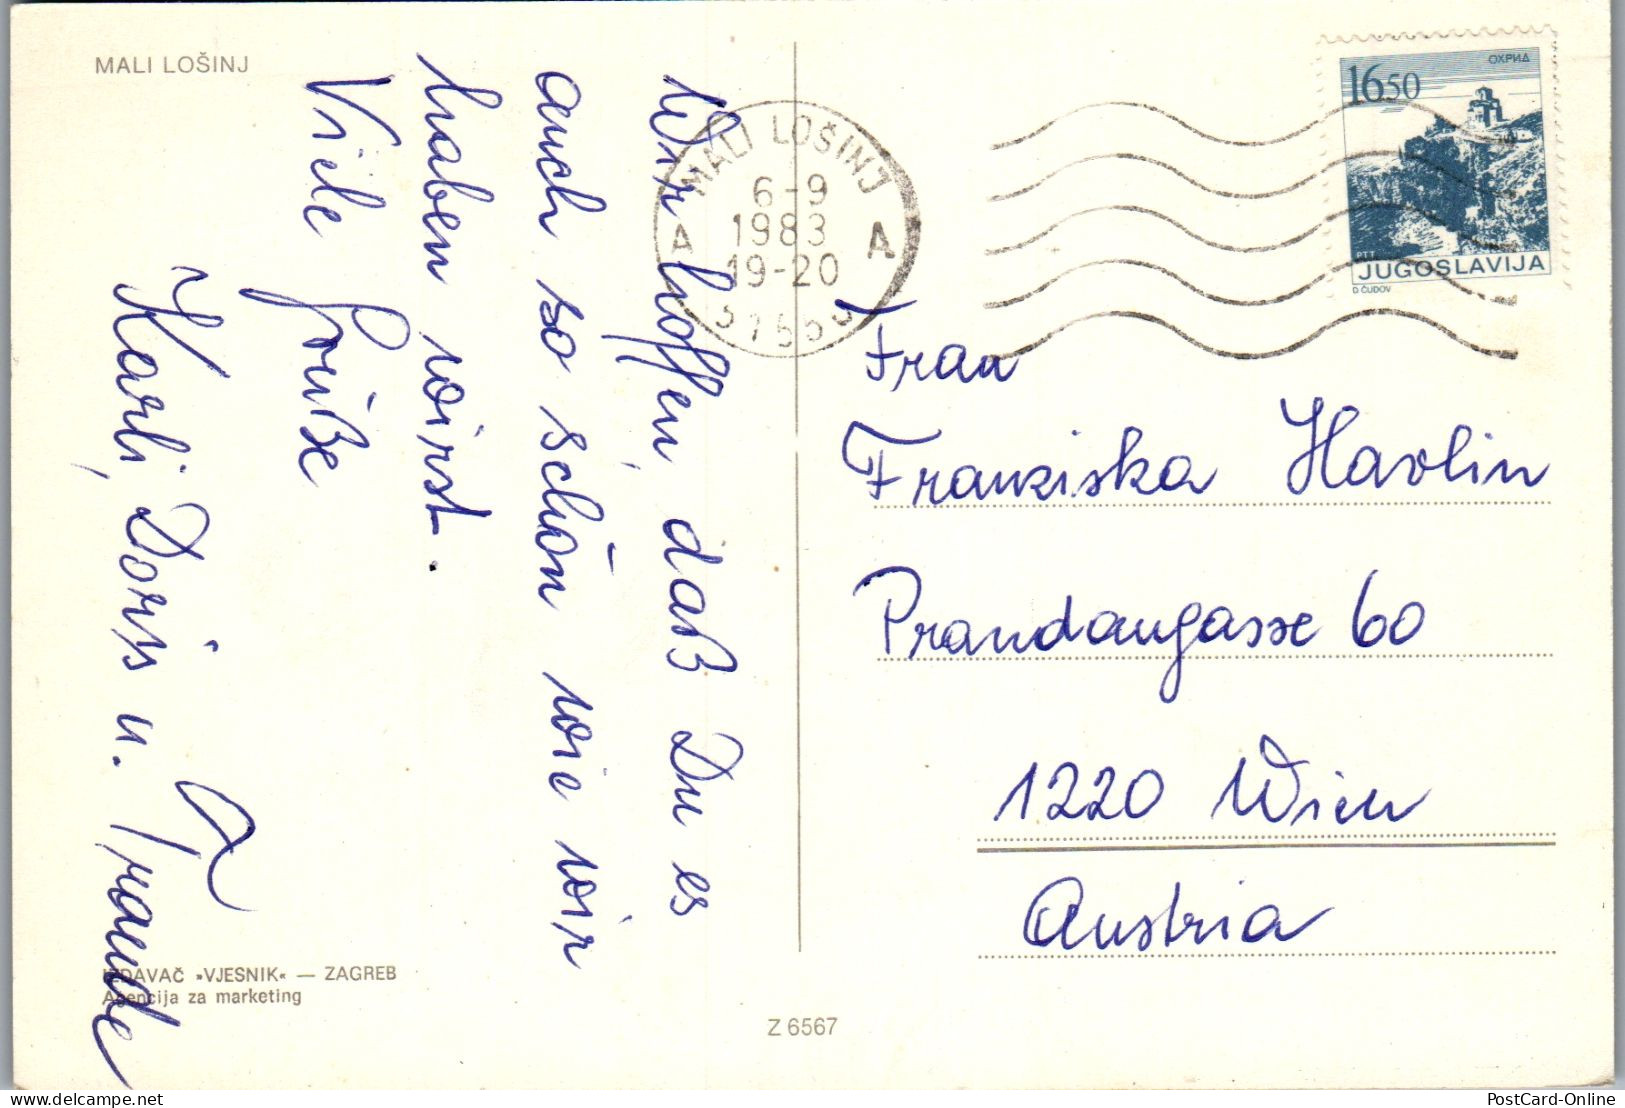 MALI LOŠINJ
Wir hoffen, daß Du es
auch so schön wie wir
haben wirst.
Viele Grüße
Karli, Doris u.
MALI LOŠINJ
6-9
1983
19-20
A A
16 50
ОХРИД
PTT
JUGOSLAVIJA
D. ČUDOV
Frau
Franziska Havlin
Prandaugasse 60
1220 Wien
Austria
IZDAVAČ »VJESNIK« — ZAGREB
Agencija za marketing
Z 6567
delcampe.net
PostCard-Online